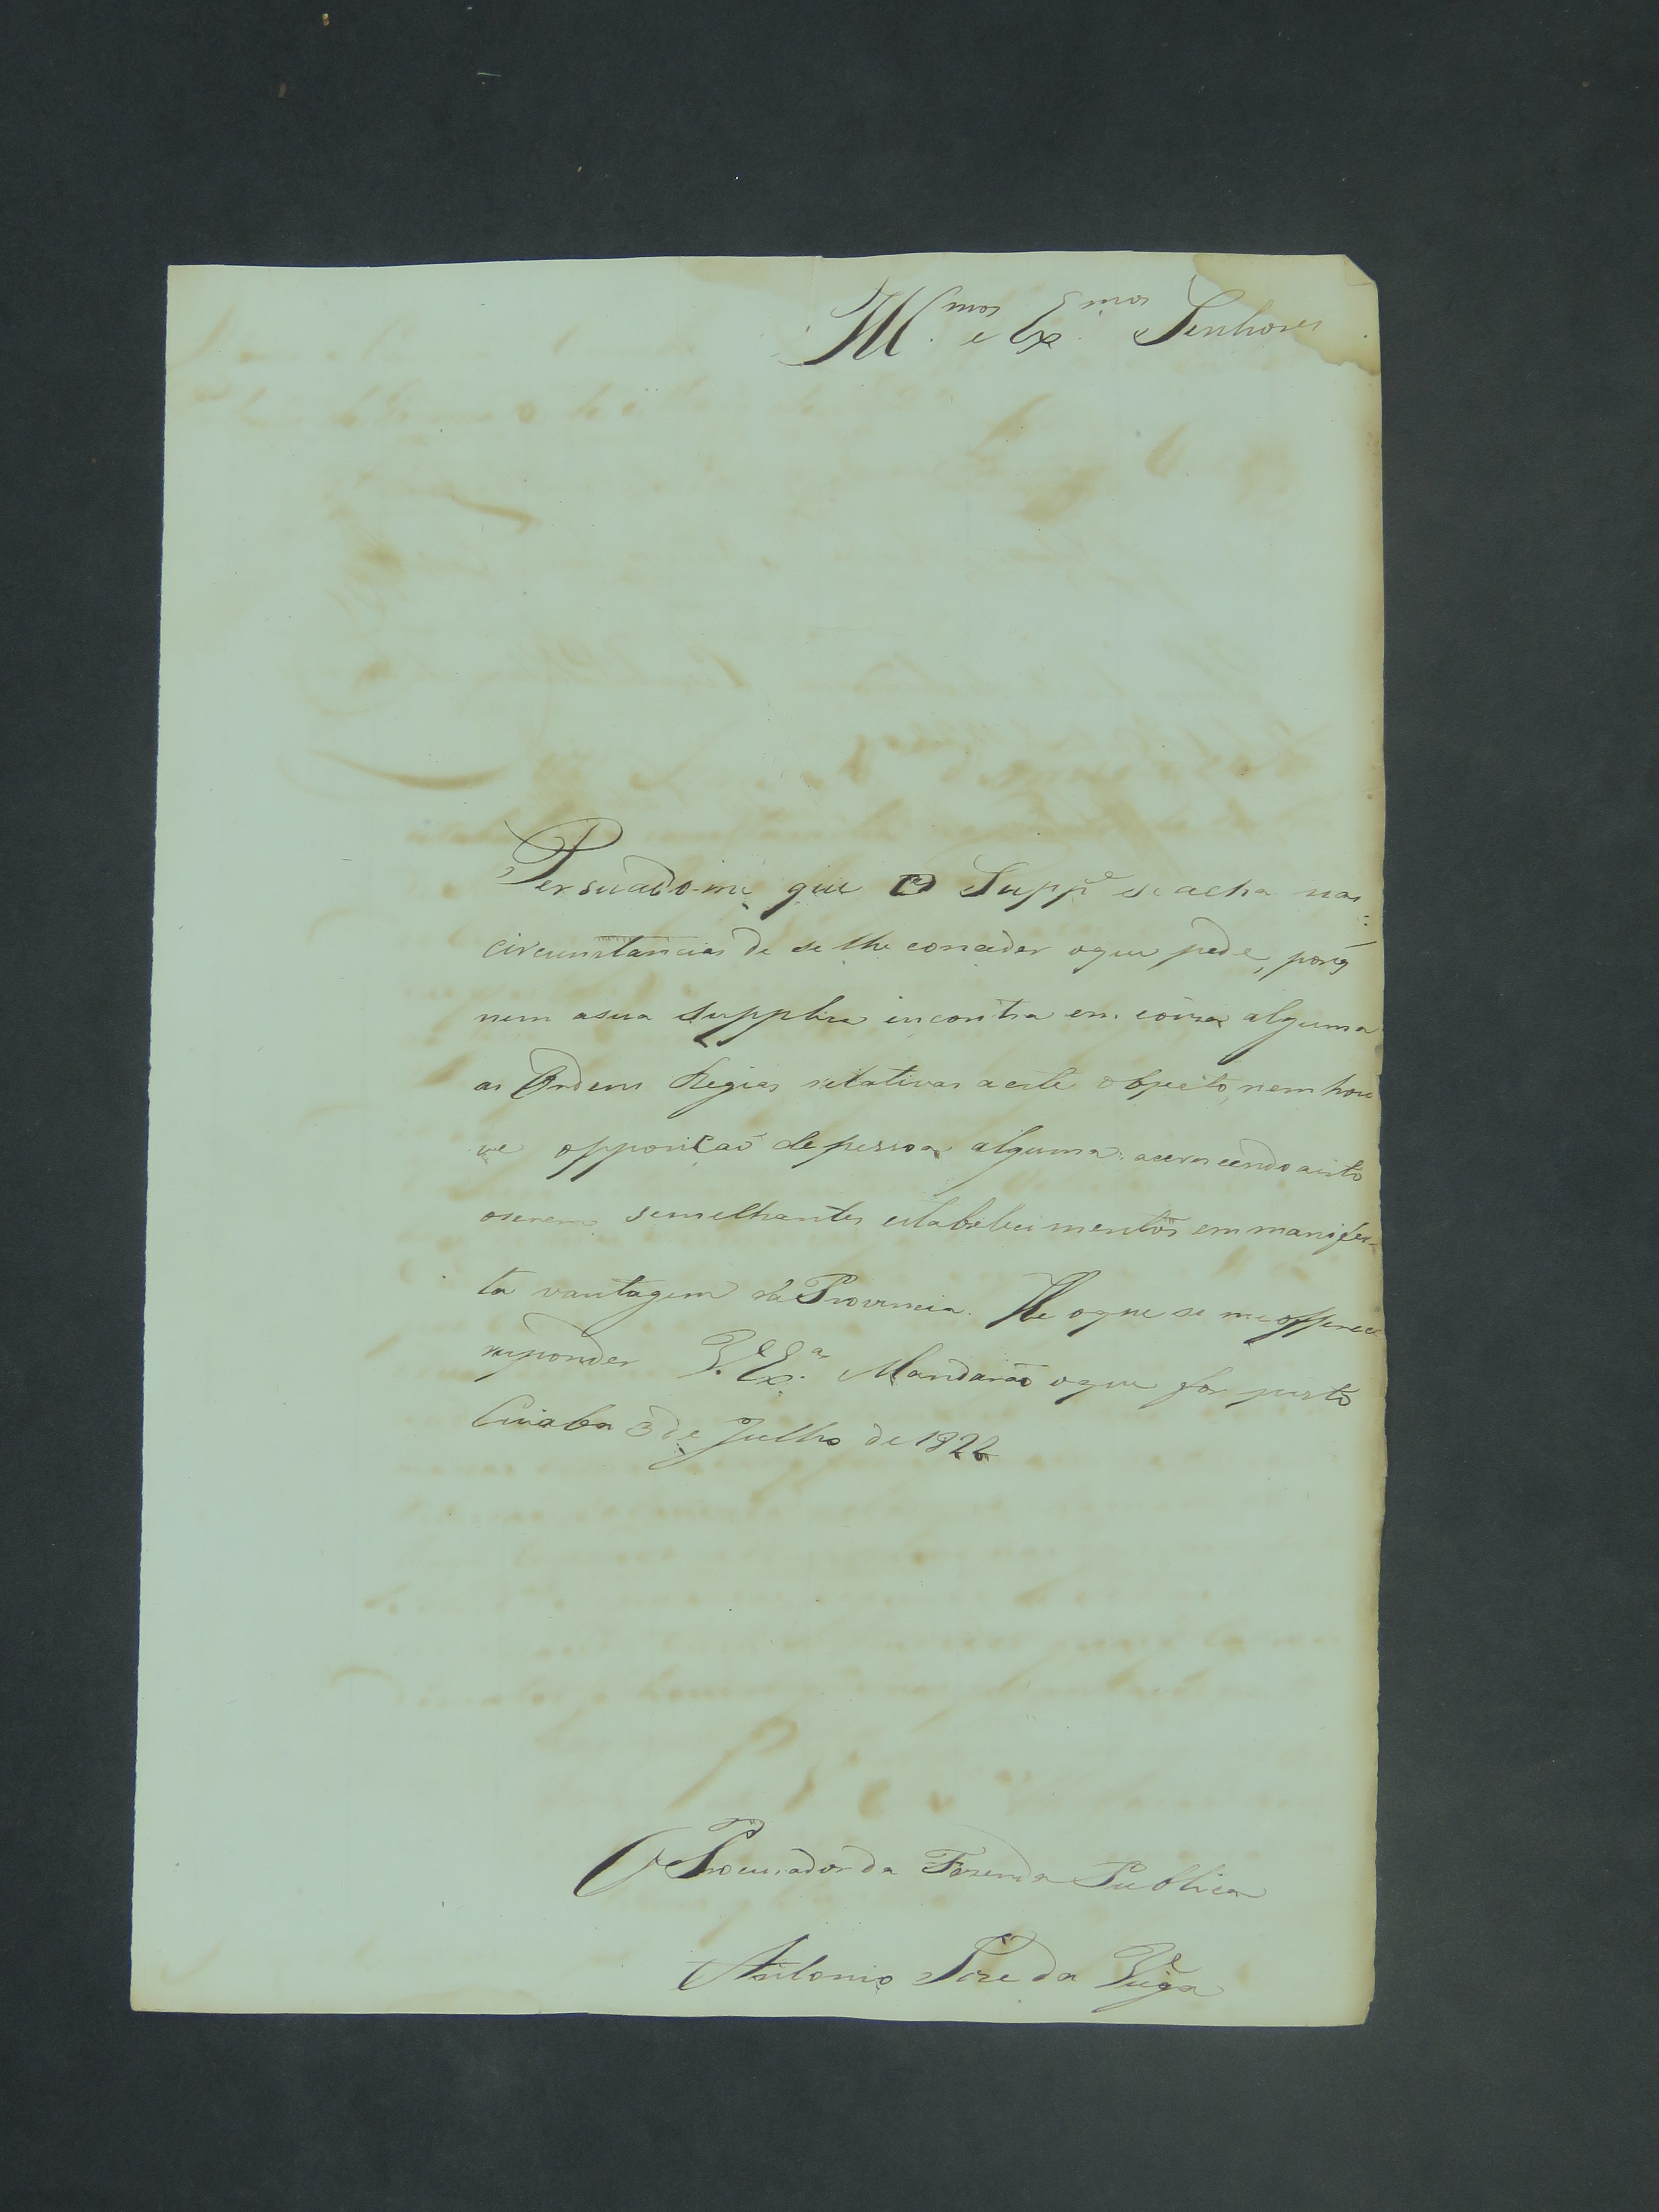 Ill.mos e Ex.mos Senhores
Persuado-me que o Supp.e se acha nas
circunstancias de se lhe conceder oque pede, porq
nem asua supplica incontra em coiza alguma
as Ordens Regias relativas aeste objecto, nem hou
ve opposicaõ depessoa alguma: acrescendo aisto
oserem semelhantes estabelecimentos em manifes-
ta vantagem da Provincia. He oque se me offerece
responder V. Ex.as Mandaraõ oque for justo
Cuiaba 3 de Julho de 1822
O Procurador da Fazenda Publica
Antonio Joze da Veiga